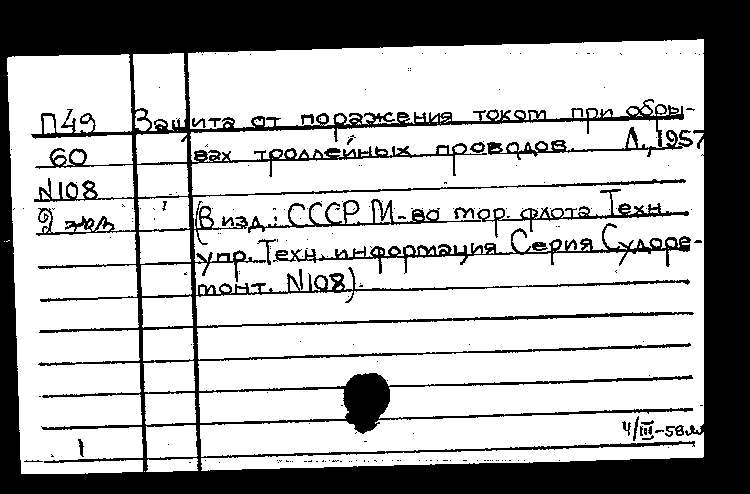 П49 Защита от поражения током при обры-
60 вах троллейных проводов. Л., 1957
N108
2 экз (В изд.: СССР. М-во мор. флота Техн.
упр. Техн. информация Серия Судоре-
монт. N108).
4/III-58
1